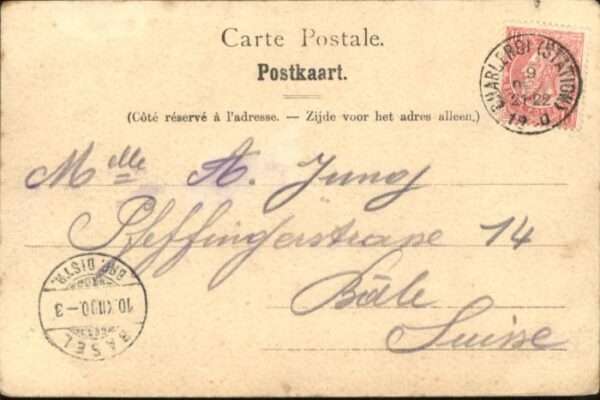 Carte Postale.
Postkaart.
(Côté réservé à l'adresse. — Zijde voor het adres alleen.)
CHARLEROI (STATION)
9
21-22
Mdlle A. Jung
Pfeffingerstrasse 14
Bâle
Suisse
BRF. DISTR.
10.XII.00.-3
BASEL